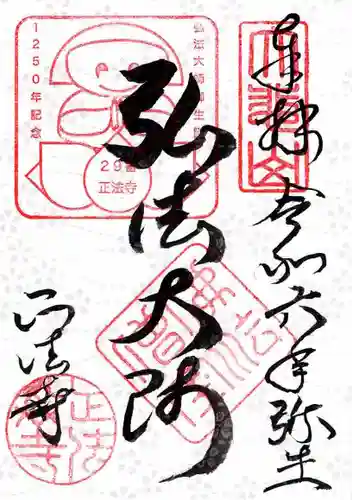 奉拝
令和六年弥生
弘法大師
正法寺
弘法大師御生誕
1250年記念
29番
正法寺
正法寺